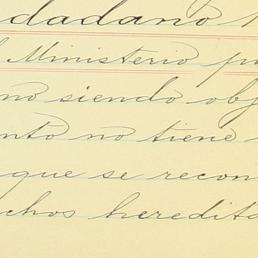 dadano
Ministerio p
no siendo obj
nto no tiene
que se recon
chos heredita